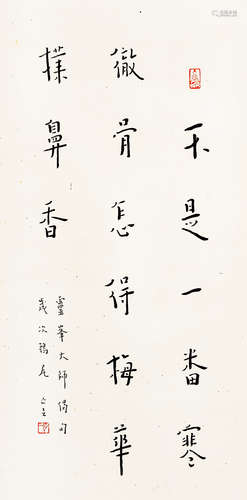 不是一番寒
徹骨怎得梅華
撲鼻香
靈峯大師偈句
歲次鶉尾